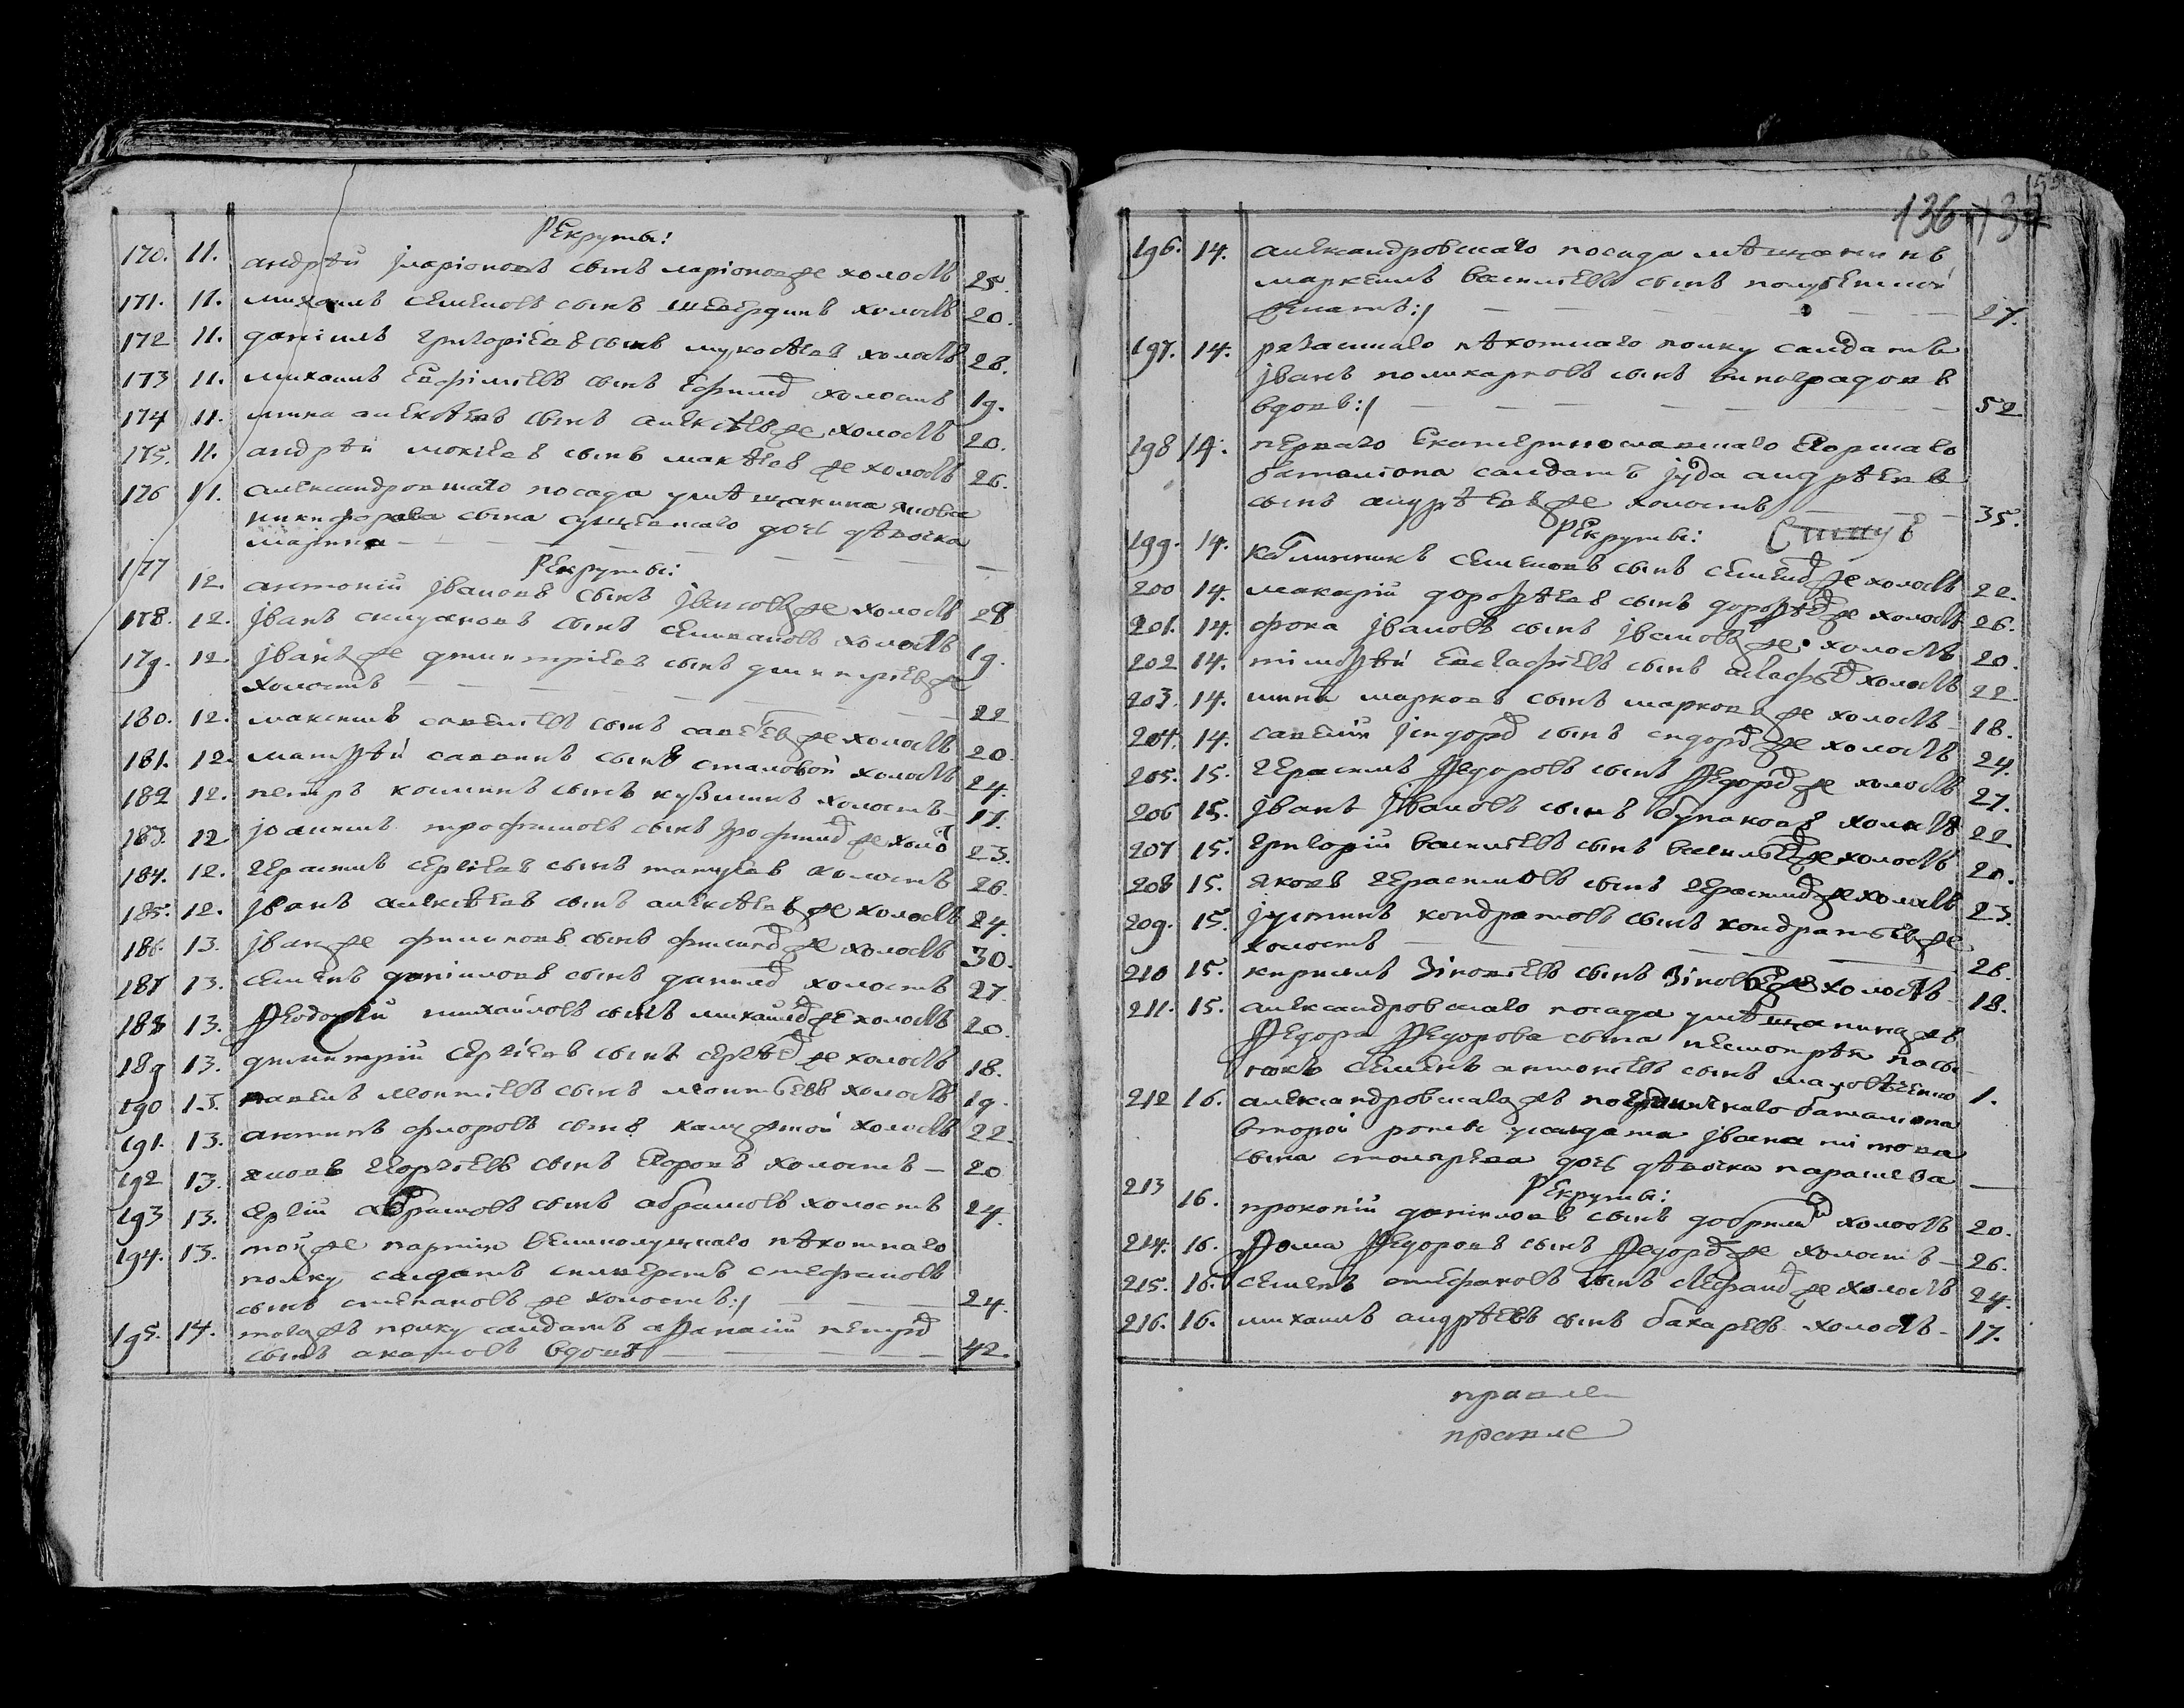 рекруты:
170. 11. андрѣй іларіоновъ сынъ ларіоновже холостъ 25.
171. 11. михаилъ семеновъ сынъ шевердинъ холостъ 20.
172 11. даніилъ григоріевъ сынъ мукосѣевъ холостъ 28.
173 11. михаилъ евфіміевъ сынъ ефимов холостъ 19.
174 11. мина алексѣевъ сынъ алексѣевже холостъ 20.
175. 11. андрѣй мокіевъ сынъ макѣевъ же холостъ 26.
176 11. александровскаго посада умѣщанина якова
никифорова сына сущевскаго дочь дѣвочка
марина — —
рекруты:
177 12. антоній івановъ сынъ івановже холостъ 28
178. 12. іванъ силуановъ сынъ селивановъ холостъ 19.
179. 12. іванъже дмитріевъ сынъ дмитріевже
холостъ — 22
180. 12. максимъ савеліевъ сынъ савелевже холостъ 20.
181. 12. матѳѣй саввинъ сынъ сталовой холостъ 24.
182 12. петръ козминъ сынъ кузминъ холостъ 17.
183. 12 іоаннъ трофимовъ сынъ трофимов же холо 23.
184. 12. герасимъ сергіевъ сынъ холостъ 26.
185. 12. іванъ алексѣевъ сынъ алексѣевъ же холостъ 24.
186. 13. іванже филиповъ сынъ филипов же холостъ 30.
187 13. семенъ даніиловъ сынъ данилов холостъ 27
188 13. ѳеодосій михайловъ сынъ михаилов же холостъ 20.
189 13. димитрій сергіевъ сынъ сергѣев же холостъ 18.
190 13. павелъ леонтіевъ сынъ леонтьевъ холостъ 19.
191. 13. антипъ флоровъ сынъ калужской холостъ 22
192 13. яковъ георгіевъ сынъ егоровъ холостъ — 20
193 13. сергій абрамовъ сынъ абрамовъ холостъ 24.
194. 13. тойже партіи великолуцкаго пѣхотнаго
полку салдатъ силверстъ стефановъ
сынъ степановъ же холостъ:/ — 24.
195. 14. тогожъ полку салдатъ аѳанасій петров
сынъ акатовъ вдовъ/ — 42.
136 135
196. 14. александровскаго посада мѣщанинъ
маркелъ василіевъ сынъ
женатъ:/ — 27.
197. 14. ряскаго пѣхотнаго полку салдатъ
іванъ поликарповъ сынъ виноградовъ
вдовъ:/ — 52
198 14. перваго екатеринославскаго егорскаго
баталіона салдатъ іуда андрѣевъ
сынъ андрѣевъже холостъ — 35.
рекруты:
199. 14. каллиникъ семеновъ сынъ семенов же холостъ 22.
200 14. макарій дороѳѣевъ сынъ дороѳѣев же холостъ 26.
201. 14. фока івановъ сынъ івановъ же холостъ 20.
202 14. тімоѳѣй евстафіевъ сынъ астафьев холостъ 22.
203. 14. мина марковъ сынъ марковъ же холостъ 18.
204. 14. савелій ісидоров сынъ сидоров же холостъ 24.
205. 15. герасимъ ѳедоровъ сынъ ѳедоров же холостъ 27.
206 15. іванъ івановъ сынъ булаковъ холостъ 22.
207 15. григорій василіевъ сынъ васильев же холостъ 20.
208 15. яковъ герасимовъ сынъ герасимов же холостъ 23.
209. 15. іустинъ кондратовъ сынъ кондратьев же
холостъ — 28.
210 15. кирилъ зіновіевъ сынъ зіновьевже холостъ 18.
211. 15. александровскаго посада умѣщанина жъ
ѳедора ѳедорова сына
семенъ антоніевъ сынъ 1.
212 16. александровскагожъ пограничнаго баталіона
второй роты усалдата івана тітова
сына столарева дочь дѣвочка парасковія —
рекруты:
213 16. прокопій даніиловъ сынъ холостъ 20.
214. 16. ѳома ѳедоровъ сынъ ѳедоров же холостъ — 26.
215. 16. семенъ стефановъ сынъ стефанов же холостъ 24.
216. 16. михаилъ андрѣевъ сынъ бахаревъ холостъ — 17.